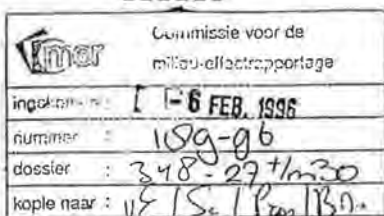 mer
Commissie voor de
milieu-effectrapportage
ingekomen : - 6 FEB. 1996
nummer : 189-96
dossier : 348-27 t/m 30
kopie naar :